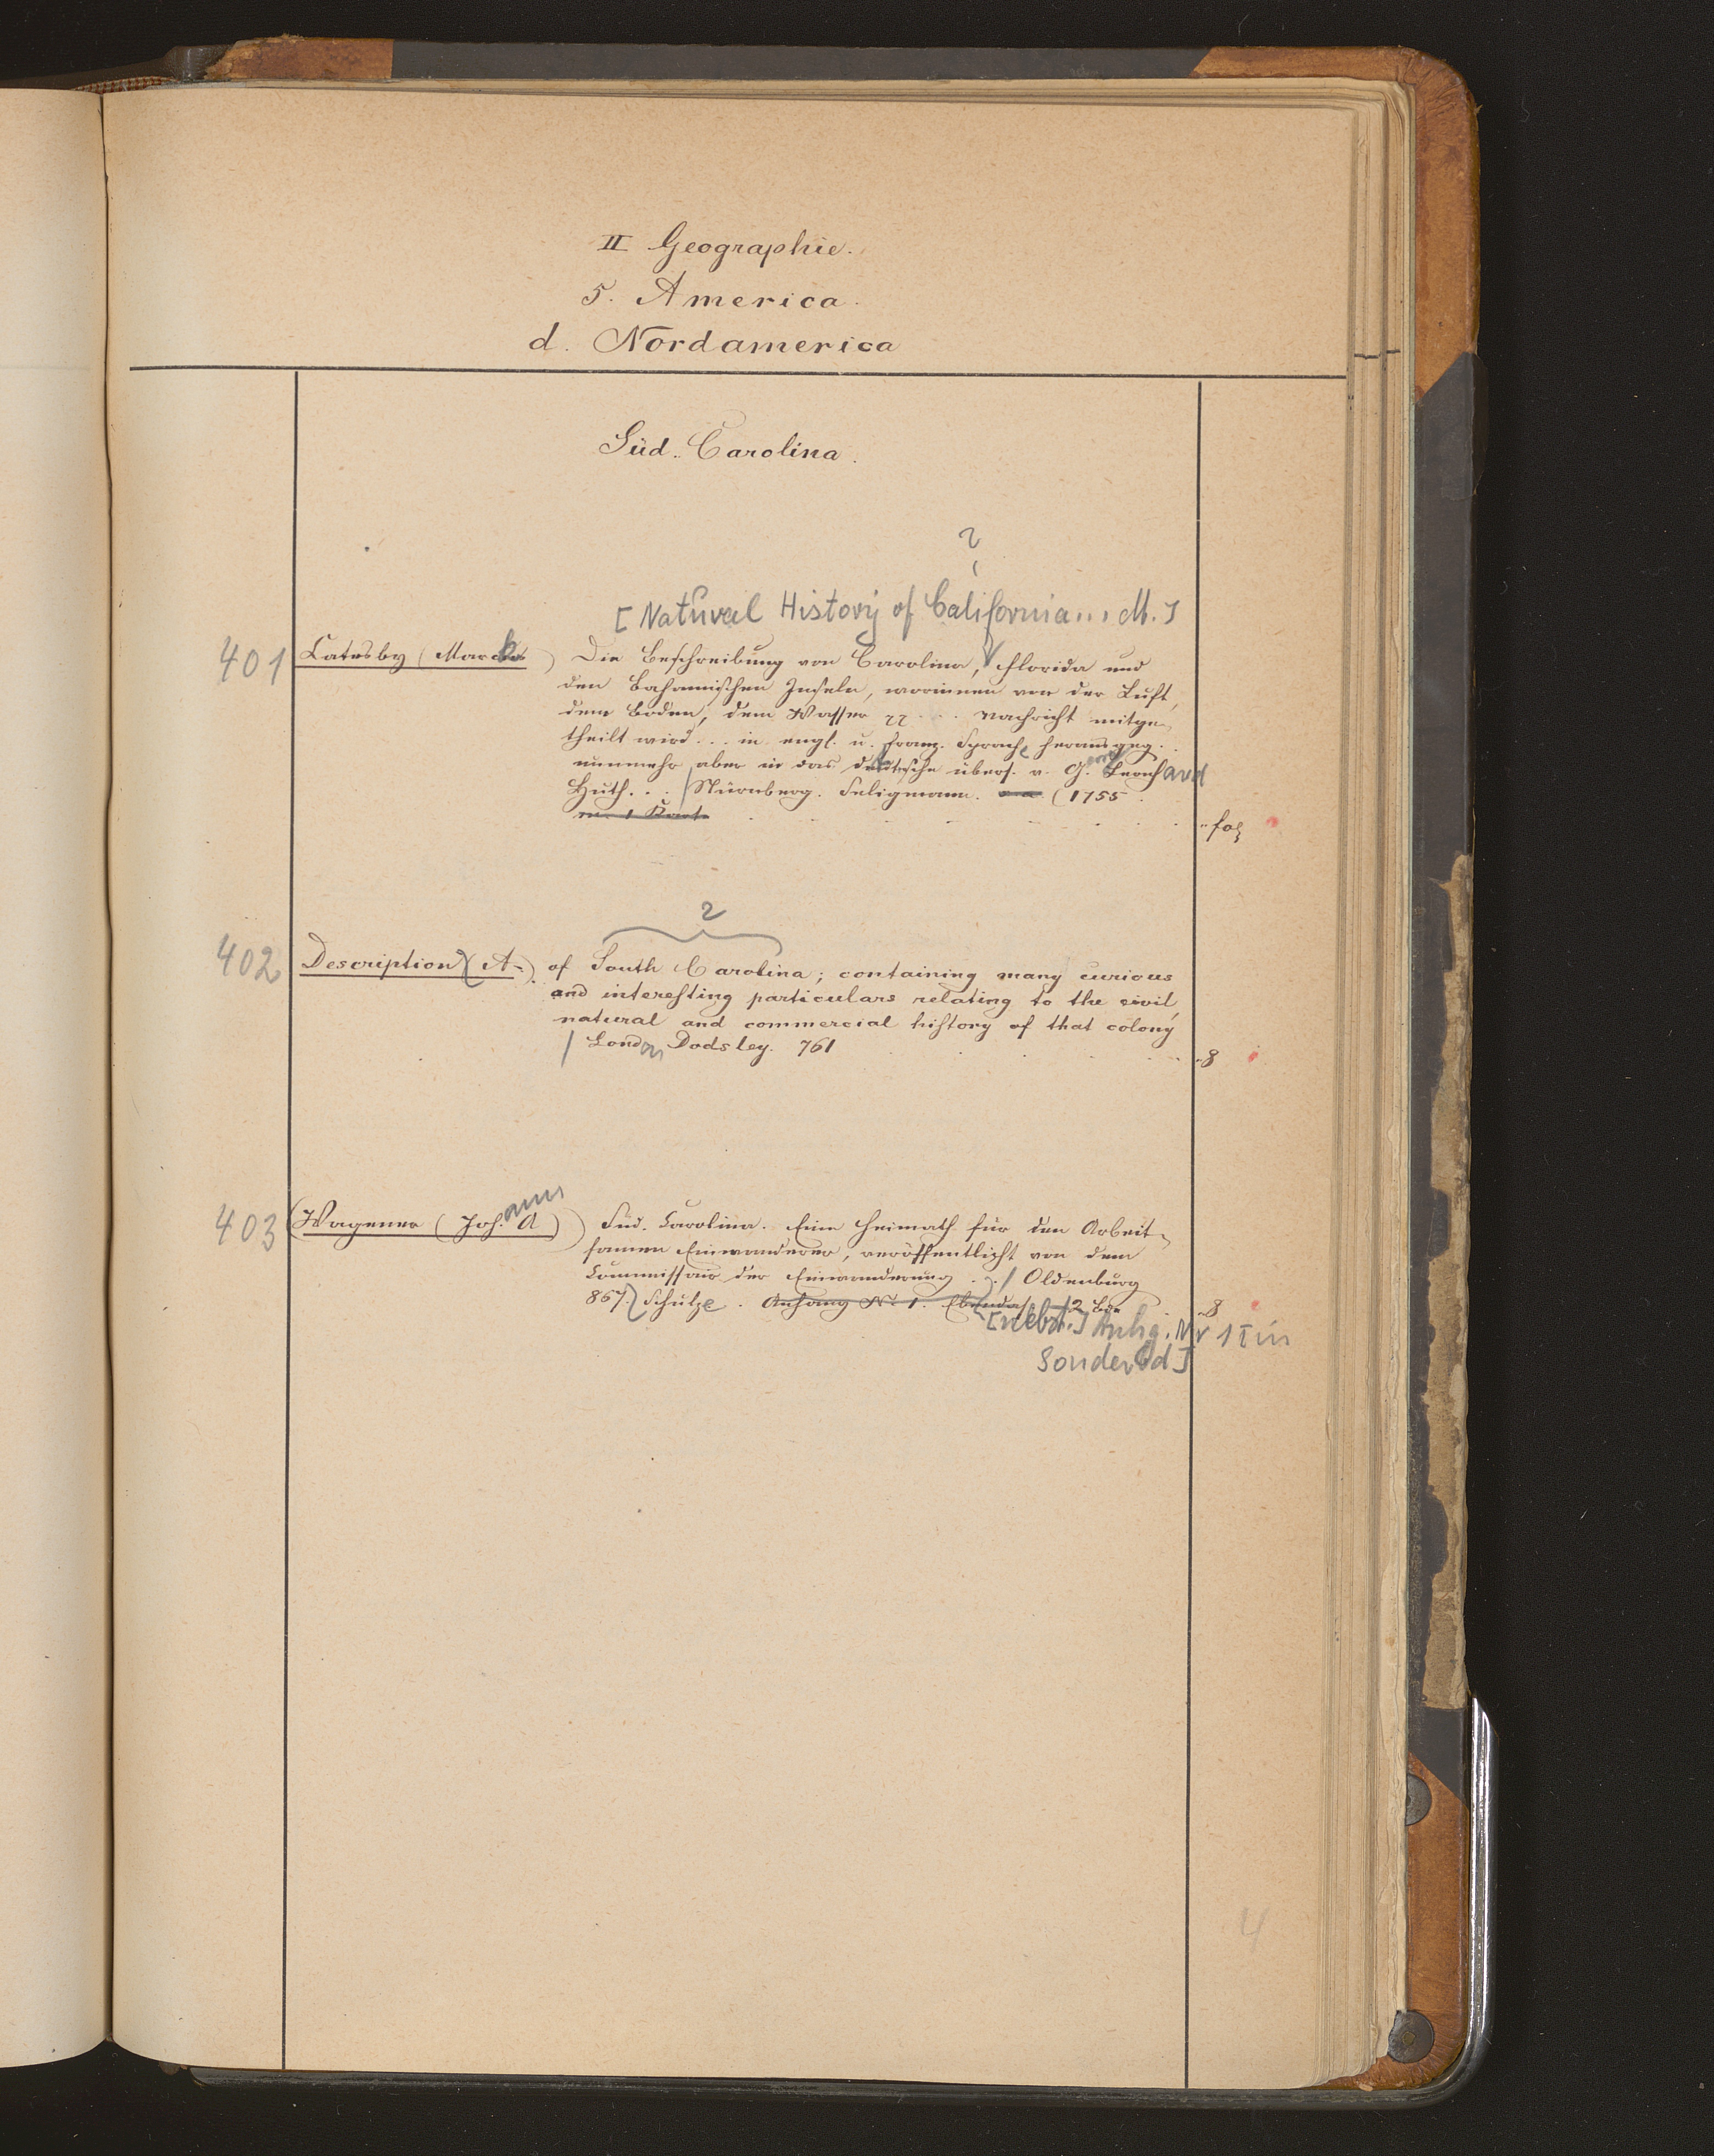 II Geographie.
5. America.
d. Nordamerica
Süd-Carolina.
2
[Natural History of California... M.]
401 Catesby (Mark) Die Beschreibung von Carolina, Florida und
den Bahamischen Inseln, worinnen von der Luft,
dem Boden, dem Wasser ... Nachricht mitge-
theilt wird... in engl. u. franz. Sprache herausgeg.
nunmehr aber in das deutsche übers. v. G. Leonhard
Huth... / Nürnberg. Seligmann. (1755.
m. 1 Kart. fol
2
402 Description (A-) of South Carolina; containing many curious
and interesting particulars relating to the civil,
natural and commercial history of that colony
/ London Dodsley. 761 8
403 (Wagener (Johann A) Süd-Carolina. Eine Heimath für den Arbeit-
samen Einwanderer, veröffentlicht von dem
Commissair der Einwanderung.. / Oldenburg
867. Schulze. Anhang No 1. Ebendas. 2 Bde 8
[nebst.] Anhg. Nr 1 [in
Sonderbd]
4